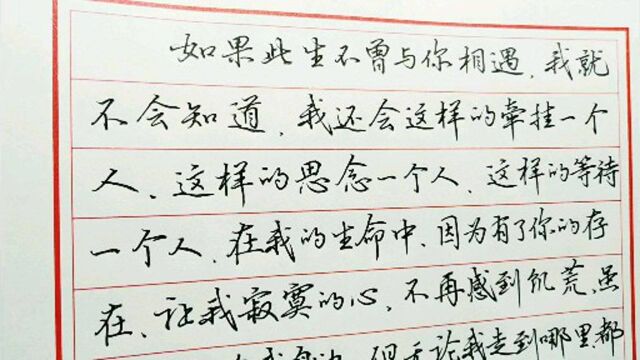 如果此生不曾与你相遇，我就
不会知道，我还会这样的牵挂一个
人、这样的思念一个人、这样的等待
一个人。在我的生命中、因为有了你的存
在、让我寂寞的心，不再感到饥荒。虽
我身边，但无论我走到哪里都